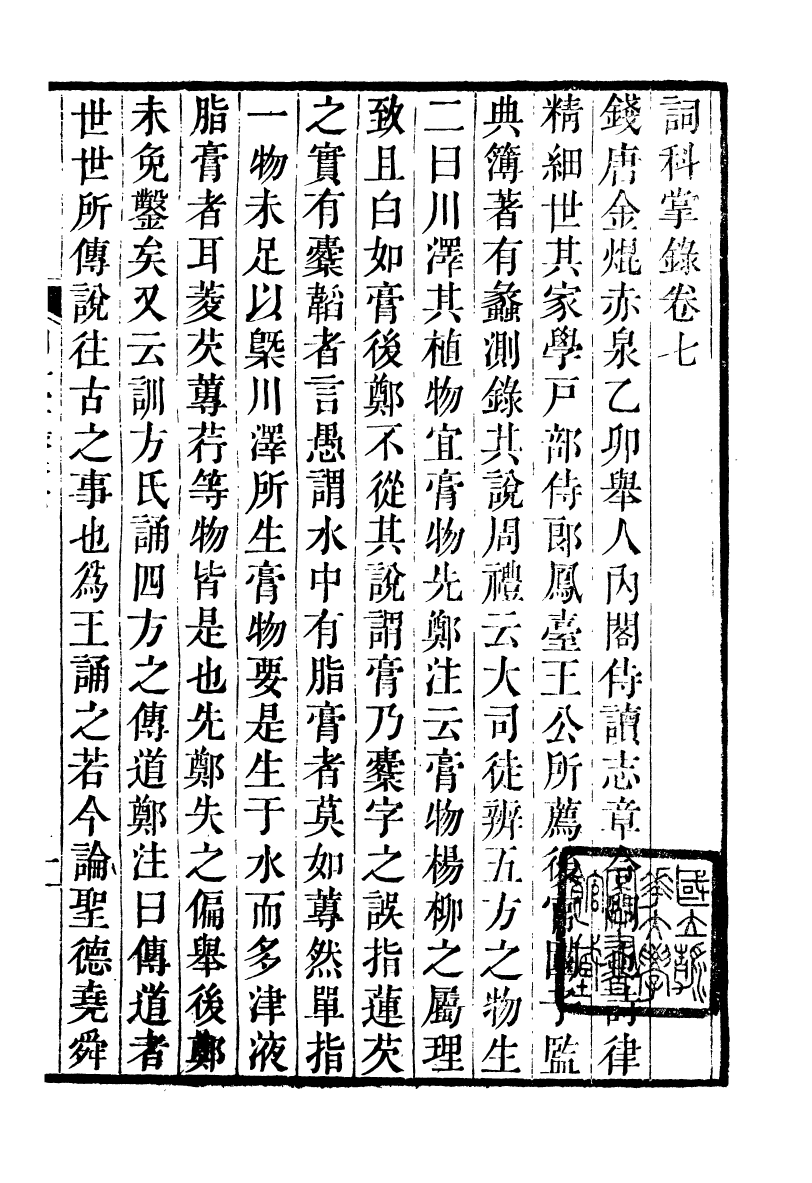 詞科掌錄卷七
錢唐金焜赤泉乙卯舉人內閣侍讀志章詩律
精細世其家學戸部侍郎鳳臺王公所薦後官國子監
典簿著有蠡測錄其說周禮云大司徒辨五方之物生
二曰川澤其植物宜膏物先鄭注云膏物楊柳之屬理
致且白如膏後鄭不從其說謂膏乃櫜字之誤指蓮芡
之實有櫜韜者言愚謂水中有脂膏者莫如蓴然單指
一物未足以槩川澤所生膏物要是生于水而多津液
脂膏者耳菱芡蓴荇等物皆是也先鄭失之偏舉後鄭
未免鑿矣又云訓方氏誦四方之傳道鄭注曰傳道者
世世所傳說往古之事也爲王誦之若今論聖德堯舜